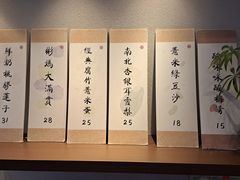 鮮奶桃膠蓮子
31
彬媽大滿貫
28
經典腐竹薏米蛋
25
南北杏銀耳雪梨
25
薏米綠豆沙
18
15